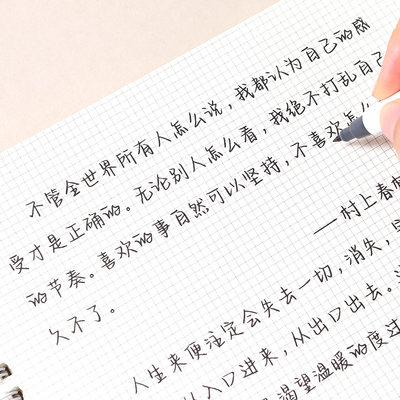 不管全世界所有人怎么说,我都认为自己的感
受才是正确的。无论别人怎么看,我绝不打乱自己
的节奏。喜欢的事自然可以坚持,不喜欢怎么
久不了。
——村上春
人生来便注定会失去一切,消失,
从入口进来,从出口出去。
渴望温暖的度过